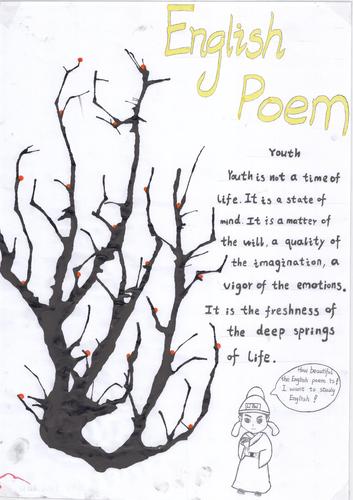 English
Poem
Youth
Youth is not a time of
life. It is a state of
mind. It is a matter of
the will, a quality of
the imagination, a
vigor of the emotions.
It is the freshness of
the deep springs
of life.
How beautiful
the English poem is!
I want to study
English!